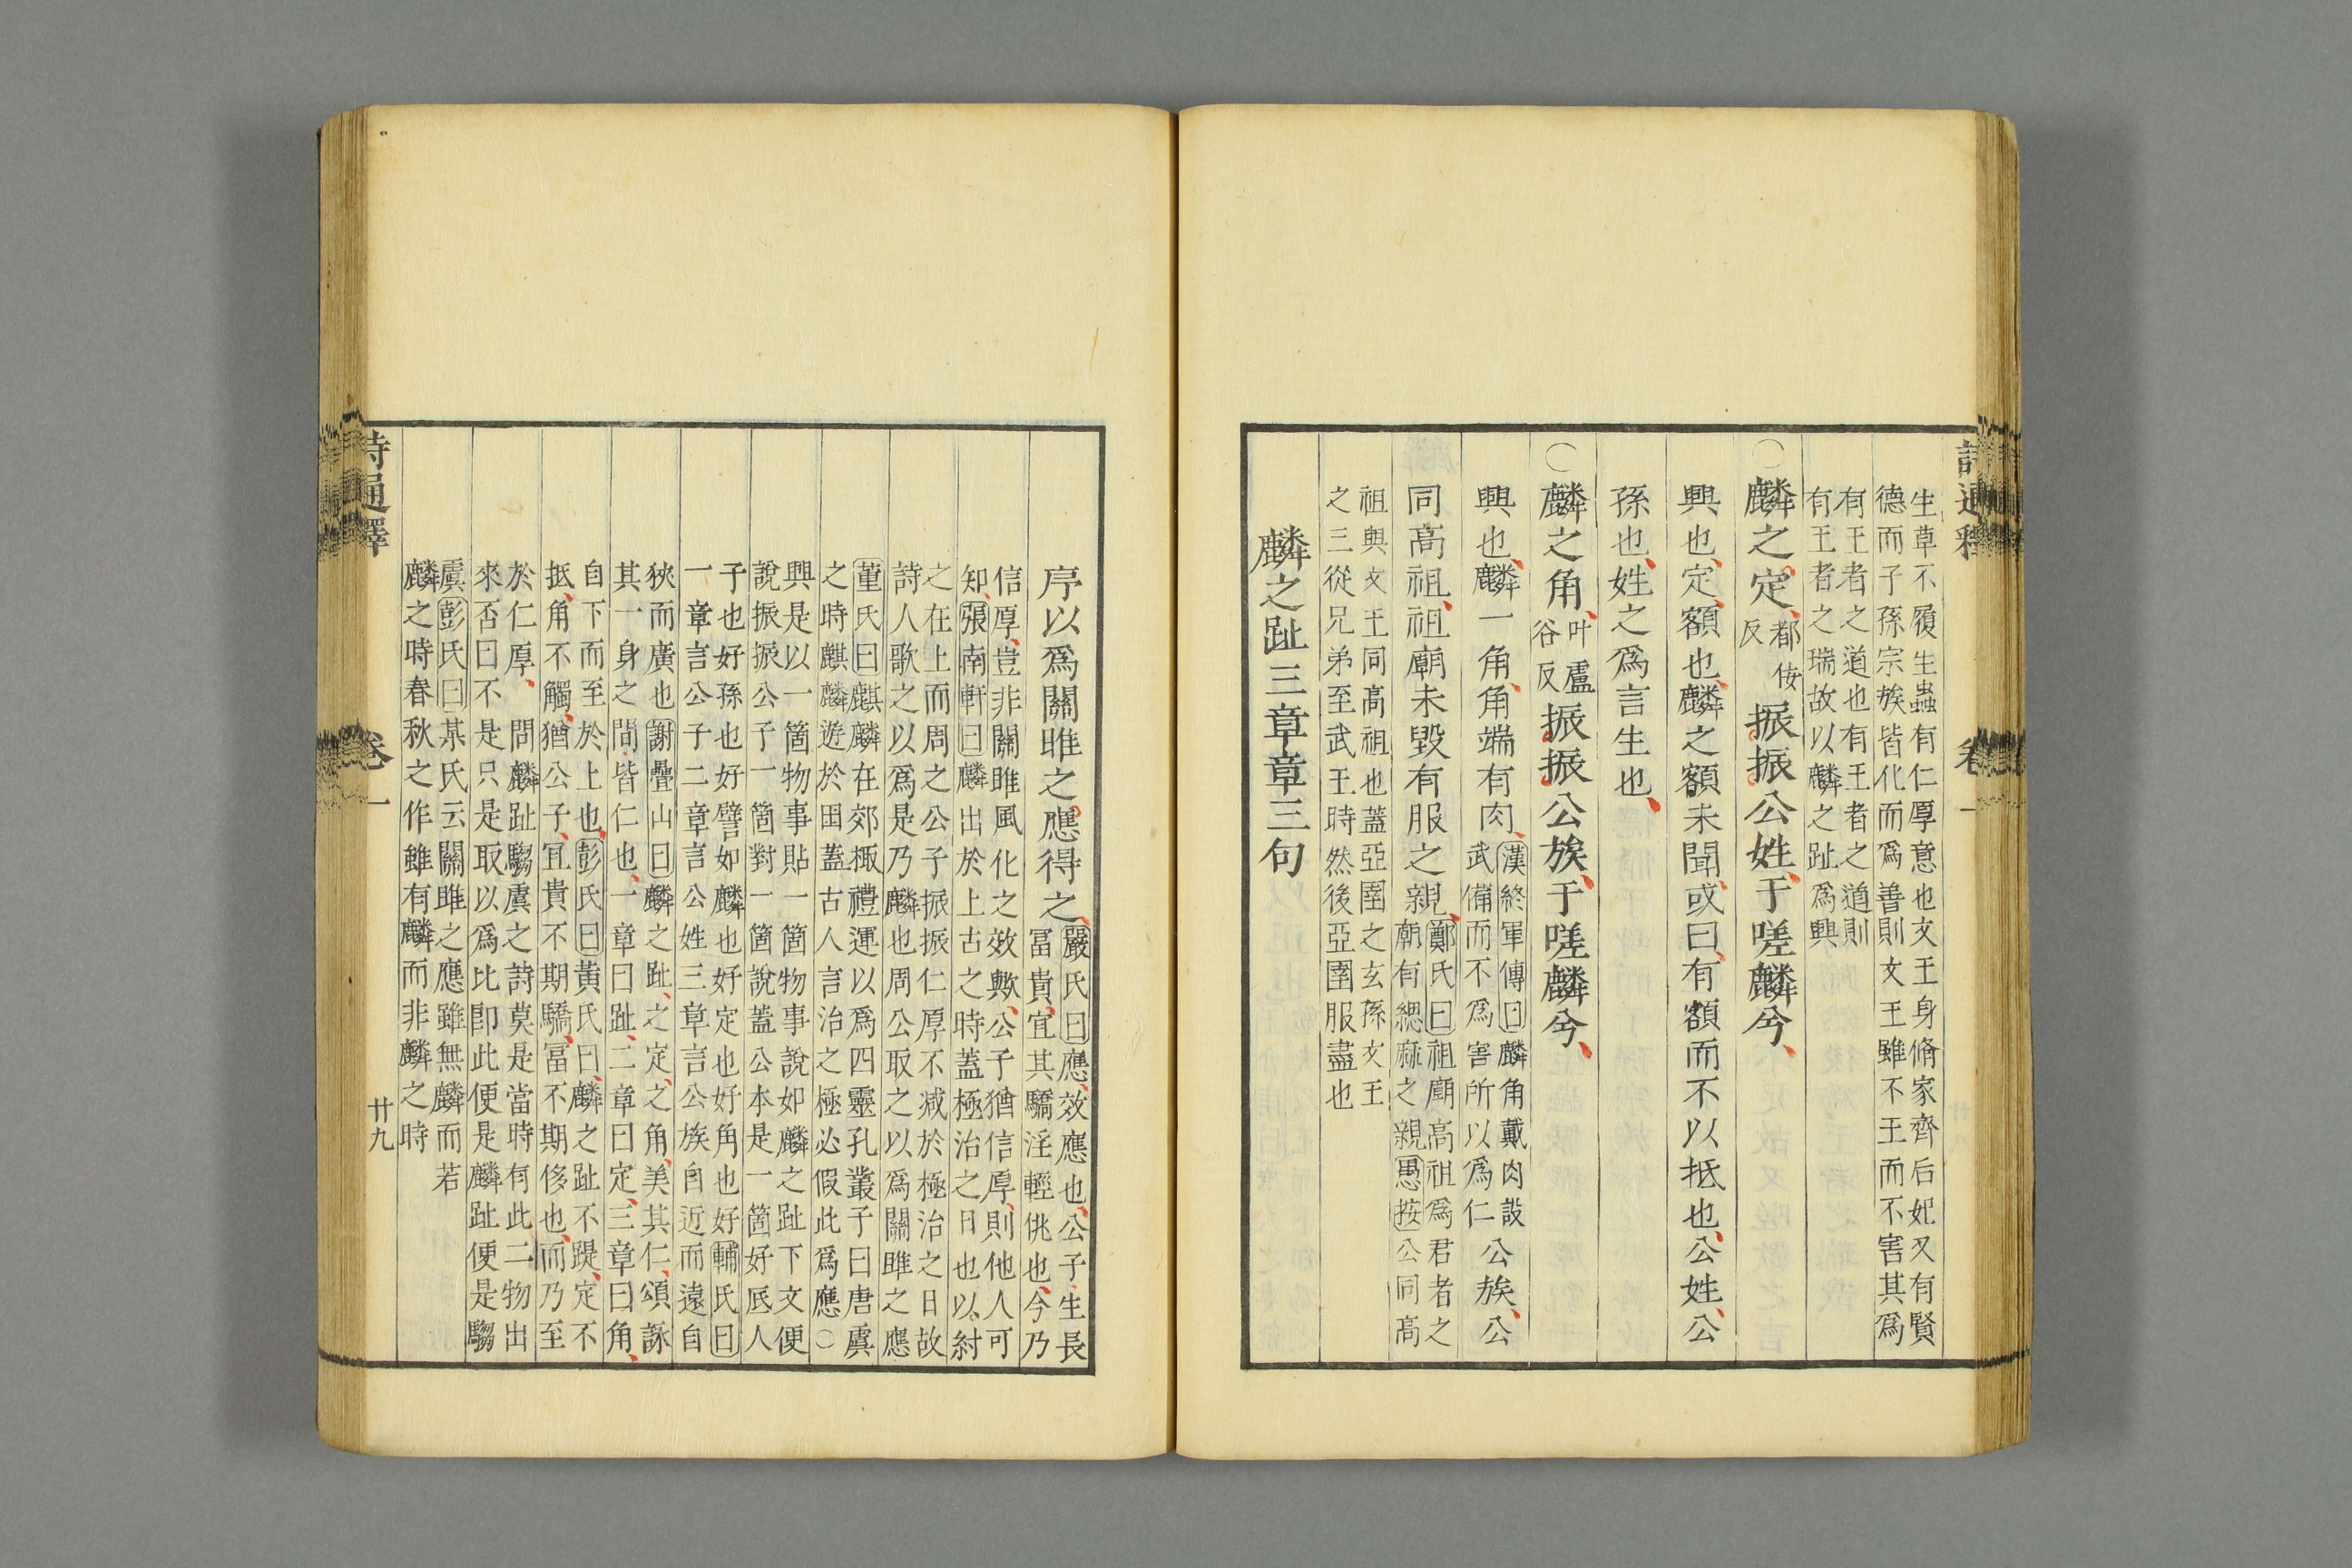 詩通釋
卷一
生草不履生蟲有仁厚意也文王身脩家齊后妃又有賢
德而子孫宗族皆化而爲善則文王雖不王而不害其爲
有王者之道也有王者之道則
有王者之瑞故以麟之趾爲興
○麟之定都佞反振振公姓于嗟麟兮
興也定額也麟之額未聞或曰有額而不以抵也公姓公
孫也姓之爲言生也
○麟之角叶盧谷反振振公族于嗟麟兮
興也麟一角角端有肉漢終軍傳曰麟角戴肉設武備而不爲害所以爲仁公族公
同高祖祖廟未毀有服之親鄭氏曰祖廟高祖爲君者之廟有緦麻之親愚按公同高
祖與文王同高祖也蓋亞圉之玄孫文王
之三從兄弟至武王時然後亞圉服盡也
麟之趾三章章三句
序以爲關雎之應得之嚴氏曰應效應也公子生長富貴宜其驕淫輕佻也今乃
信厚豈非關雎風化之效歟公子猶信厚則他人可
知張南軒曰麟出於上古之時蓋極治之日也以紂
之在上而周之公子振振仁厚不减於極治之日故
詩人歌之以爲是乃麟也周公取之以爲關雎之應
董氏曰麒麟在郊棷禮運以爲四靈孔叢子曰唐虞
之時麒麟遊於田蓋古人言治之極必假此爲應○
興是以一箇物事貼一箇物事說如麟之趾下文便
說振振公子一箇對一箇說蓋公本是一箇好底人
子也好孫也好譬如麟也好定也好角也好輔氏曰
一章言公子二章言公姓三章言公族自近而遠自
狹而廣也謝疊山曰麟之趾之定之角美其仁頌詠
其一身之間皆仁也一章曰趾二章曰定三章曰角
自下而至於上也彭氏曰黃氏曰麟之趾不踶定不
抵角不觸猶公子宜貴不期驕富不期侈也而乃至
於仁厚問麟趾騶虞之詩莫是當時有此二物出
來否曰不是只是取以爲比即此便是麟趾便是騶
虞彭氏曰某氏云關雎之應雖無麟而若
麟之時春秋之作雖有麟而非麟之時
詩通釋
卷一
廿九